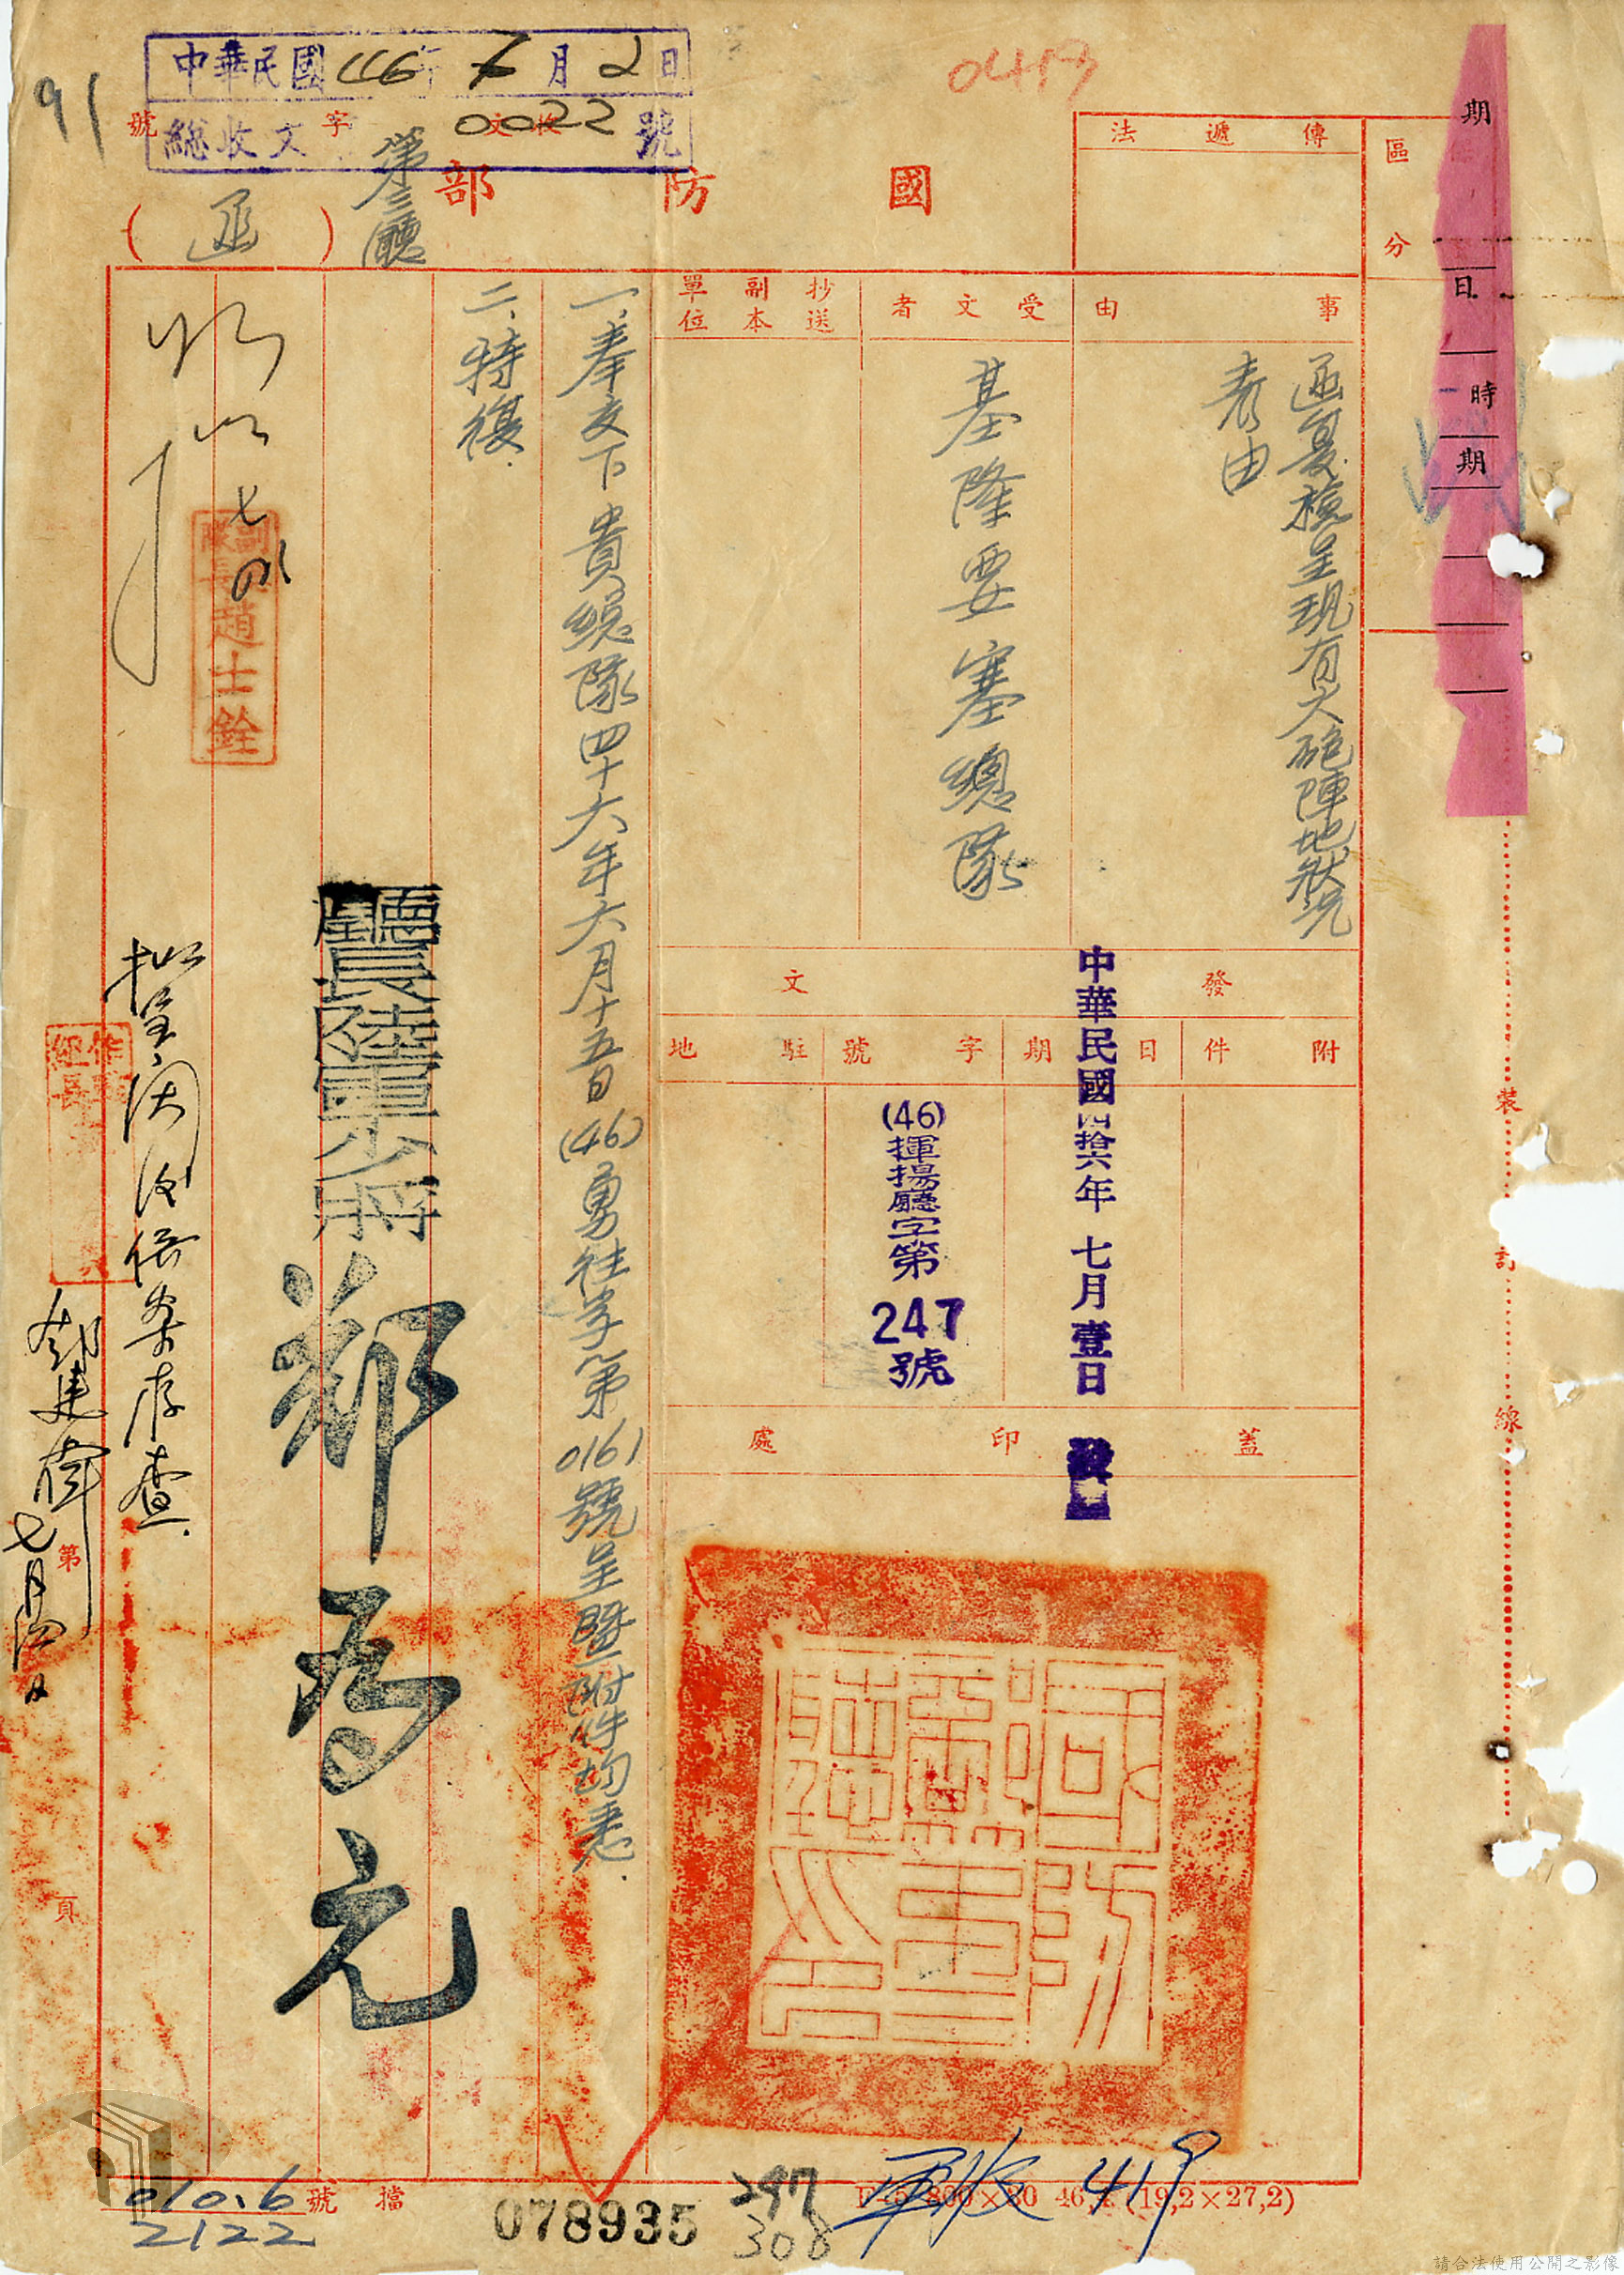 中華民國46年7月2日
總收文 0022 號
收文 字 號
91
0419
國防部
第三廳
(函)
傳遞法
區分
期
日
時
期
事由
函复檢呈現有大砲陣地狀況
表由
受文者
基隆要塞總隊
抄送副本單位
發文
附件
日期
中華民國四拾六年七月壹日
字號
(46)
揮揚廳字第
247
號
駐地
蓋印處
國防部
一、奉交下貴總隊四十六年六月十五日(46)勇往字第0161號呈暨附件均悉.
二、特復.
廳長陸軍少將
鄭為元
副隊長趙士銓
擬呈閱後依案存查.
作戰組長
裝
訂
線
第
頁
檔號
010.6
2122
078935
297
308
軍收 419
(19,2×27,2)
請合法使用公開之影像